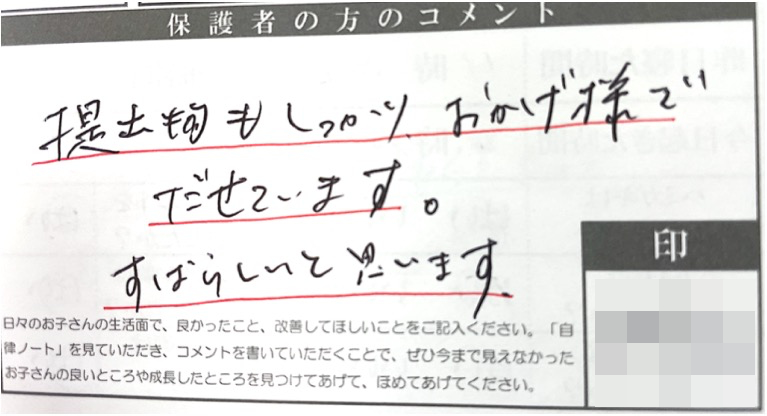 保護者の方のコメント
提出物もしっかり、おかげ様で
だせています。
すばらしいと思います
印
日々のお子さんの生活面で、良かったこと、改善してほしいことをご記入ください。「自
律ノート」を見ていただき、コメントを書いていただくことで、ぜひ今まで見えなかった
お子さんの良いところや成長したところを見つけてあげて、ほめてあげてください。